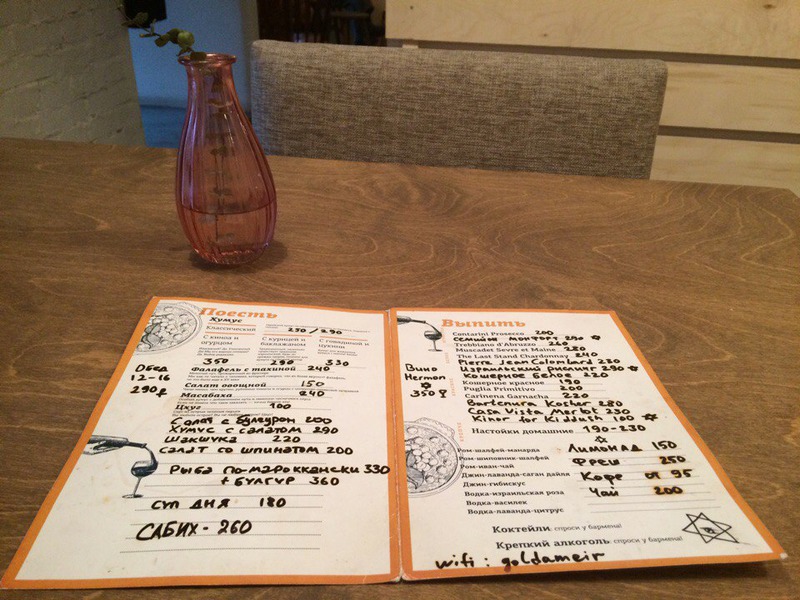 Поесть
Хумус
Классический 250/290
С киноа и огурцом
С курицей и баклажаном
С говядиной и
350 290 330
Обед
12-16
290₽
Фалафель с тахиной 240
Салат овощной 150
Масабаха 240
Цхуг 100
Салат с булгуром 200
Хумус с салатом 290
Шакшука 220
Салат со шпинатом 200
Рыба по-мароккански 330
+ булгур 360
Суп дня 180
Сабих - 260
Выпить
Contarini Prosecco 200
Семийон Монфорт 290
Trebbiano d'Abruzzo 260
Muscadet Sevre et Maine 280
The Last Stand Chardonnay 240
Pierre Jean Colombard 230
Израильский рислинг 290
Кошерное белое 220
Кошерное красное 190
Puglia Primitivo 200
Carinena Garnacha 220
Bartenura Kosher 280
Casa Vista Merlot 230
Kinor for Kiddush 100
Вино
Hermon
350
Настойки домашние 190-230
Ром-шалфей-манарда
Ром-шиповник-шалфей
Ром-иван-чай
Джин-лаванда-саган дайля
Джин-гибискус
Водка-израильская роза
Водка-василек
Водка-лаванда-цитрус
Лимонад 150
Фреш 250
Кофе от 95
Чай 200
Коктейли спроси у бармена!
Крепкий алкоголь спроси у бармена!
wifi : goldameir